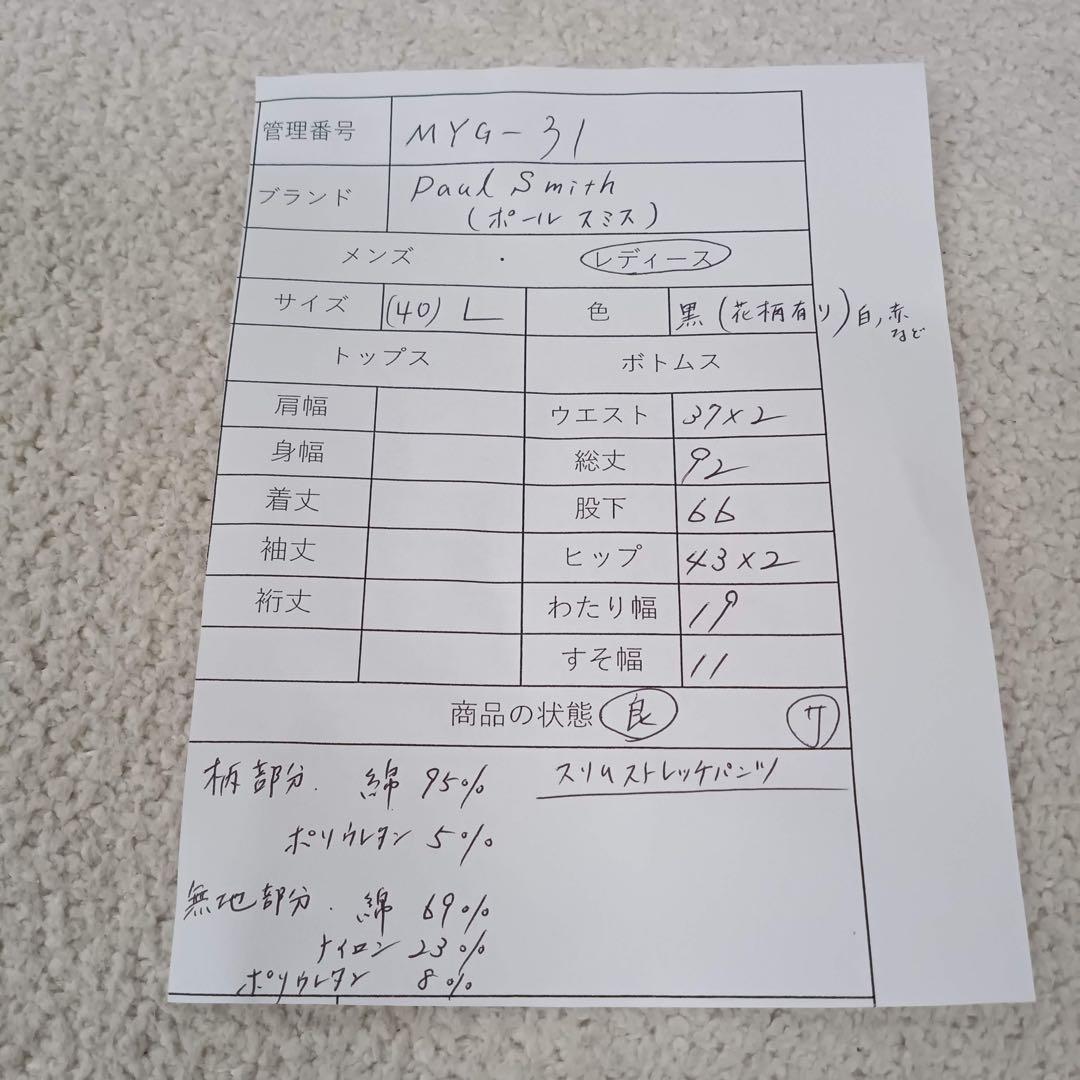 管理番号 MYG-31
ブランド Paul Smith
(ポール スミス)
メンズ ・ レディース
サイズ (40) L 色 黒(花柄有り)白,赤
など
トップス ボトムス
肩幅 ウエスト 37×2
身幅 総丈 92
着丈 股下 66
袖丈 ヒップ 43×2
裄丈 わたり幅 19
すそ幅 11
商品の状態 良 サ
柄部分. 綿 95% スリムストレッチパンツ
ポリウレタン 5%
無地部分. 綿 69%
ナイロン 23%
ポリウレタン 8%